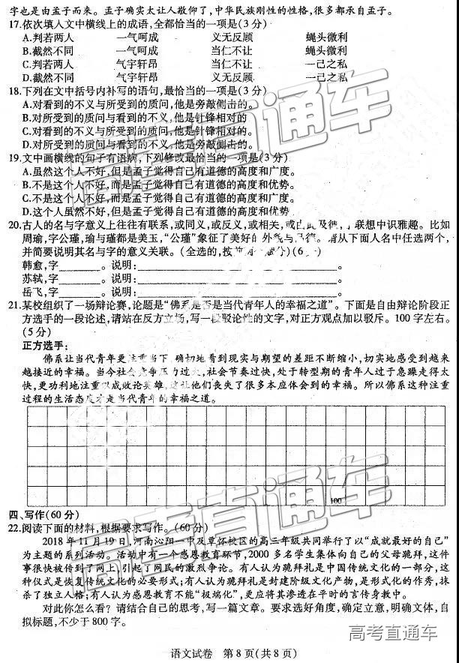 字也是由孟子而来。孟子确实太让人敬仰了,中华民族刚性的性格,很多都承自孟子。
17.依次填入文中横线上的成语,全都恰当的一项是(3分)
A.判若两人 一气呵成 义无反顾 蝇头微利
B.截然不同 一气呵成 当仁不让 蝇头微利
C.判若两人 气宇轩昂 当仁不让 一己之私
D.截然不同 气宇轩昂 义无反顾 一己之私
18.下列在文中括号内补写的语句,最恰当的一项是(3分)
A.对看到的不义与所受到的质问,他是旁敲侧击的。
B.对所受到的质问与看到的不义,他是针锋相对的
C.对看到的不义与所受到的质问,他是针锋相对的。
D.对所受到的质问与看到的不义,他是旁敲侧击的。
19.文中画横线的句子有语病,下列修改最恰当的一项是(3分)
A.虽然这个人不好,但是孟子觉得自己有道德的高度和广度。
B.不是这个人不好,而是孟子觉得自己有道德的高度和优势。
C.不是这个人不好,而是孟子觉得自己有道德的高度和广度。
D.这个人虽然不好,但是孟子觉得自己有道德的高度和优势。
20.古人的名与字意义上往往有联系,或同义,或反义,或相关,联想中识雅趣。比如
周瑜,字公瑾,瑜与瑾都是美玉,“公瑾”象征了美好的外气与。请从下面人名中任选两个,
并简要说明其名与字的意义关联。(全选的,按分)(6分)
韩愈,字 。说明:
苏轼,字 。说明:
岳飞,字 。说明:
21.某校组织了一场辩论赛,论题是“佛系是否是当代青年人的幸福之道”。下面是自由辩论阶段正
方选手的一段论述,请站在反方立场,写一段驳论性的文字,对正方观点加以驳斥。100字左右。
(5分)
正方选手:
佛系让当代青年更注重当下,确切地看到现实与期望的差距不断缩小,切实地感受到越来
越接近的幸福。当今社会竞争压力过大,社会节奏过快,处于转型期的青年人过于急躁走得太
快,更功利地注重以成败论英雄,这让他们丧失了很多本应体会到的幸福。所以佛系这种注重
过程的生活态度才是当代青年的幸福之道。
100
四、写作(60分)
22.阅读下面的材料,根据要求写作。(60分)
2018年11月19日,河南沁阳一中及覃怀校区的高三年级共同举行了以“成就最好的自己”
为主题的系列活动。活动中有一个感恩教育环节,2000多名学生集体向自己的父母跪拜,这件
事很快被传到了网上,引起了网民的激烈争论。有人认为跪拜礼是中国传统文化的一部分,这
种仪式是恢复传统文化的必要形式;有人认为跪拜礼是封建阶级文化产物,是形式化的作秀,抹
杀了独立人格;有人认为感恩教育不能“极端化”,更应将其渗透在平时的言传身教中。
对此你怎么看?请结合自己的思考,写一篇文章。要求选好角度,确定立意,明确文体,自
拟标题,不少于800字。
语文试卷 第8页(共8页)
高考直通车
高考直通车
高考直通车